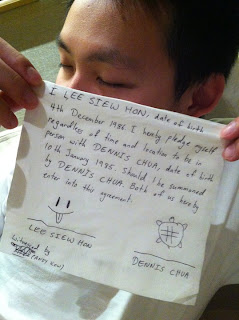 I LEE SIEW HON, date of birth
9th December 1986 I hereby pledge myself
regardless of time and location to be in
person with DENNIS CHUA, date of birth
10th January 1985. Should I be summoned
by DENNIS CHUA. Both of us hereby
enter into this agreement.
LEE SIEW HON
DENNIS CHUA
Witnessed by